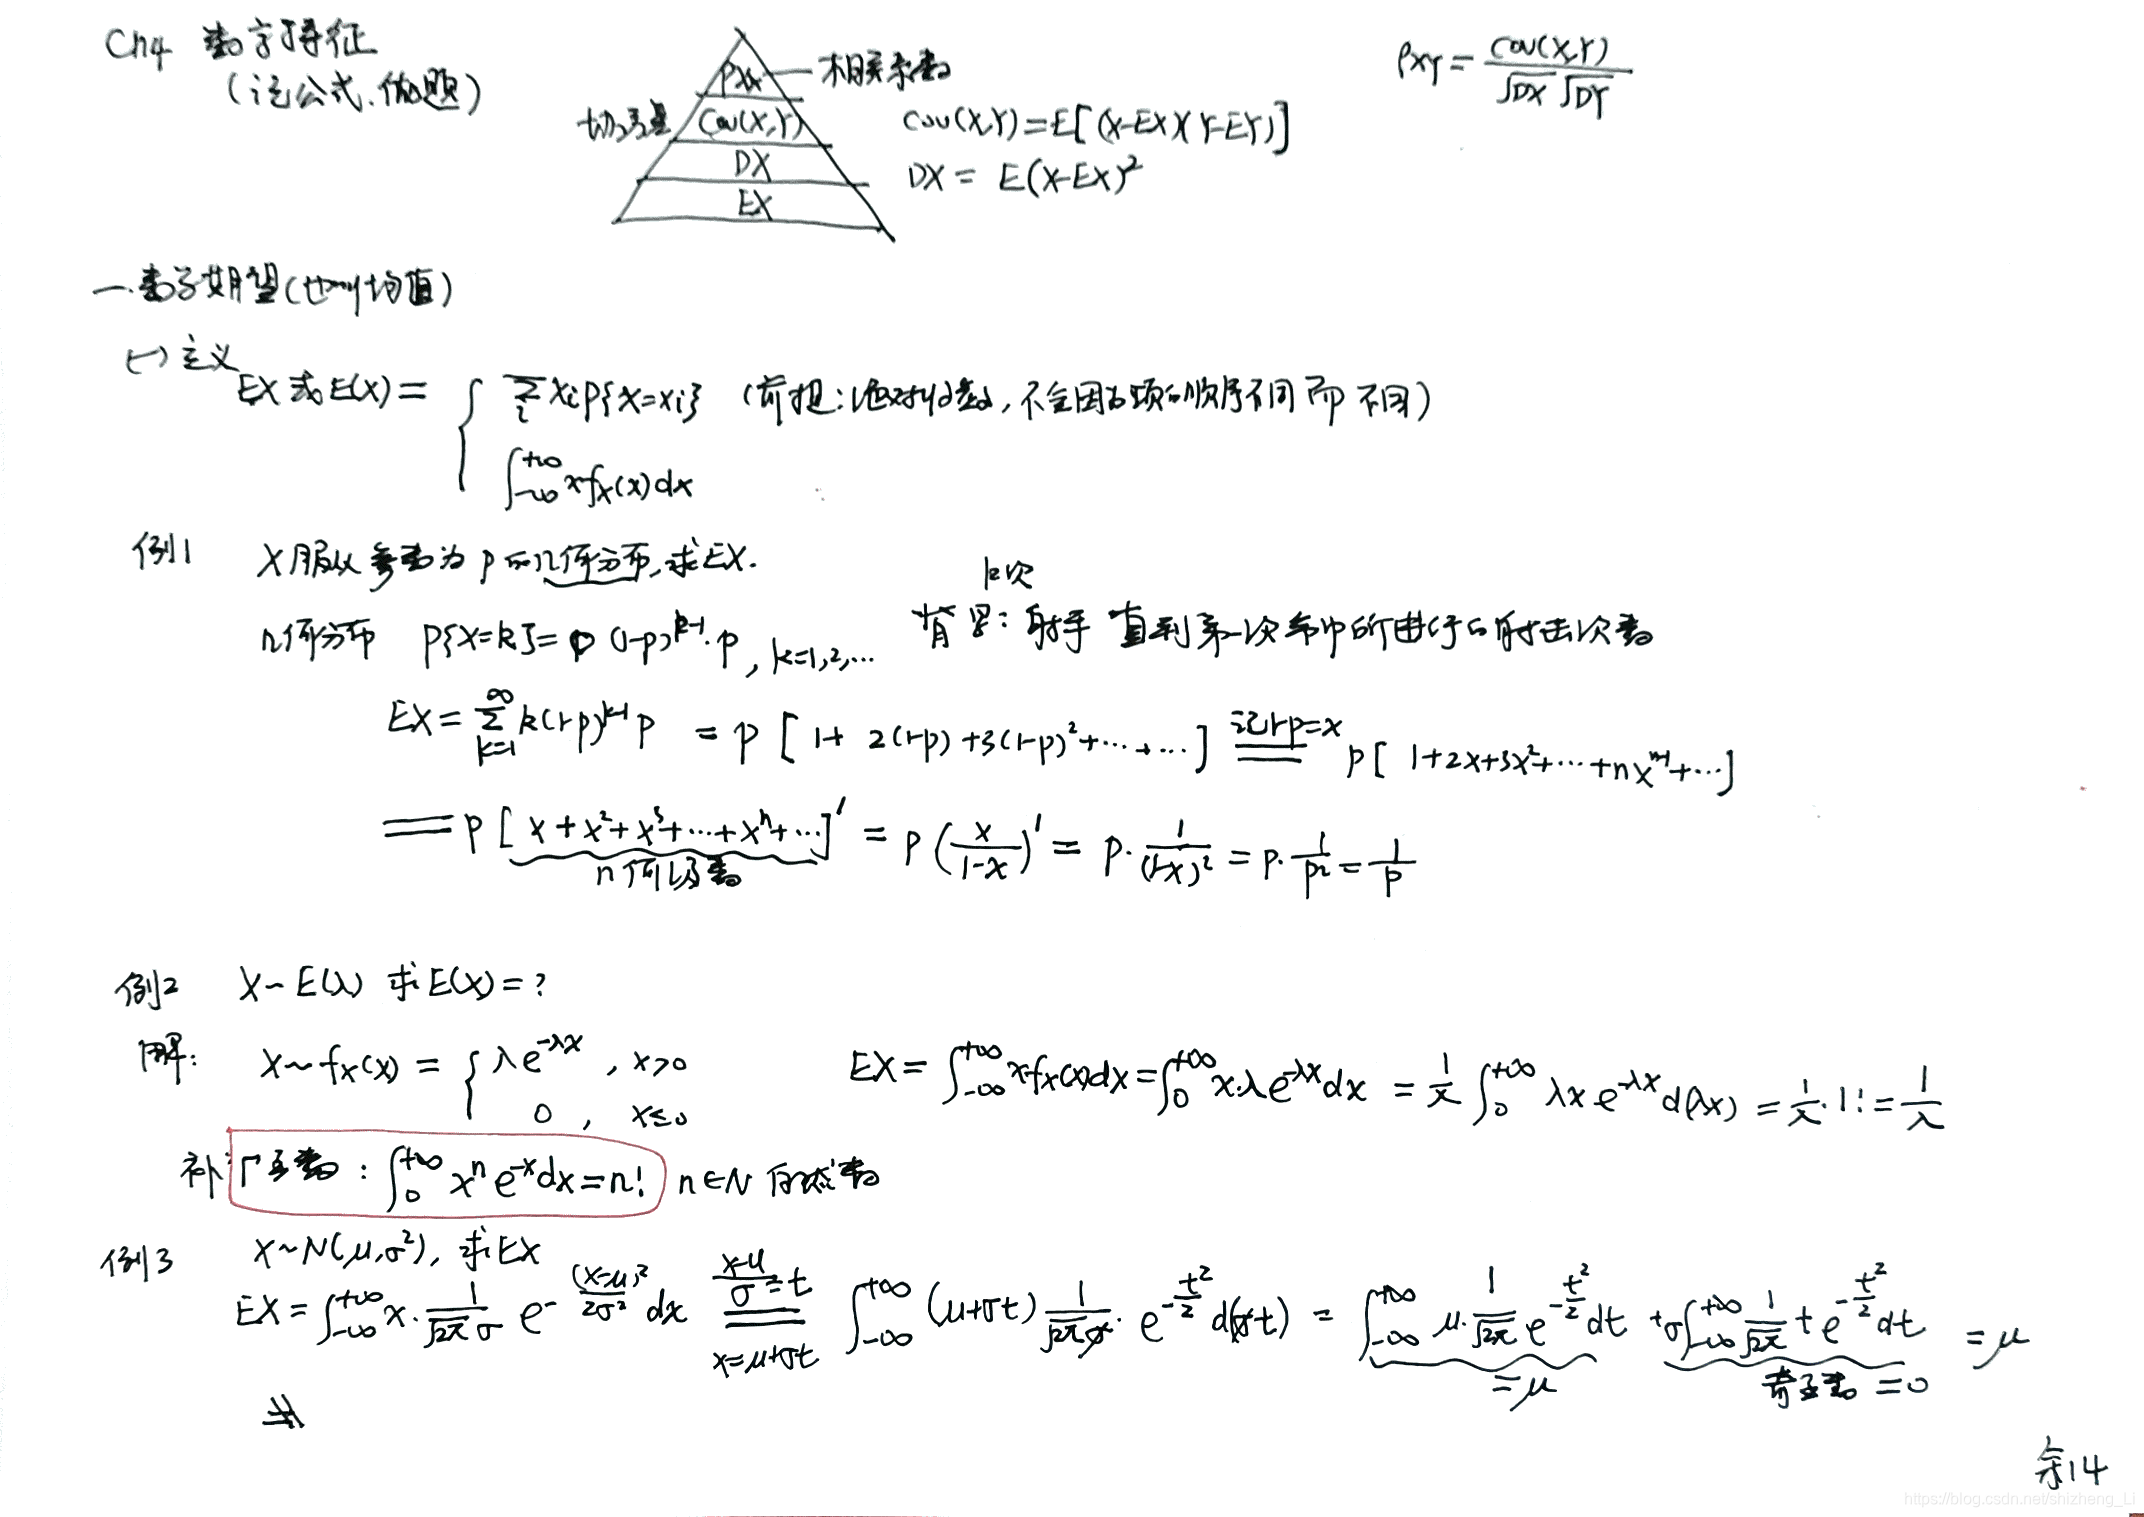 Ch4 数字特征
(记公式、做题)
ρxy — 相关系数
协方差 Cov(X,Y)
DX
EX
Cov(X,Y)=E[(X-EX)(Y-EY)]
DX = E(X-EX)²
ρXY = Cov(X,Y) / √DX √DY
一.数学期望(也叫均值)
(一) 定义
EX 或 E(X) = { Σᵢ xᵢ P{X=xᵢ} (前提:绝对收敛,不会因为项的顺序不同而不同)
∫_{-∞}^{+∞} x f_X(x) dx
例1 X服从参数为 p 的几何分布,求EX.
k次
几何分布 P{X=k}= (1-p)^{k-1}·p, k=1,2,… 背景:射手 直到第一次命中所进行的射击次数
EX = Σ_{k=1}^{∞} k(1-p)^{k-1} p = p [1+ 2(1-p)+3(1-p)²+⋯+⋯] 记1-p=x p[ 1+2x+3x²+⋯+nx^{n-1}+⋯]
= p [x+x²+x³+⋯+xⁿ+⋯]′ = p (x/(1-x))′ = p· 1/(1-x)² = p· 1/p² = 1/p
几何级数
例2 X~E(λ) 求E(X)=?
解: X~f_X(x) = { λe^{-λx} , x>0
0 , x≤0
EX= ∫_{-∞}^{+∞} x f_X(x)dx = ∫_0^{+∞} x·λe^{-λx}dx = 1/λ ∫_0^{+∞} λx e^{-λx} d(λx) = 1/λ · 1! = 1/λ
补: Γ函数: ∫_0^{+∞} xⁿ e^{-x}dx=n! n∈N 自然数
例3 X~N(μ,σ²), 求EX
EX = ∫_{-∞}^{+∞} x· 1/(√2π σ) e^{-(x-μ)²/2σ²} dx (x-μ)/σ=t x=μ+σt ∫_{-∞}^{+∞} (μ+σt) 1/(√2π σ)· e^{-t²/2} d(σt) = ∫_{-∞}^{+∞} μ· 1/√2π e^{-t²/2}dt + σ∫_{-∞}^{+∞} 1/√2π t e^{-t²/2} dt = μ
=μ
奇函数 =0
余14
https://blog.csdn.net/shizheng_Li